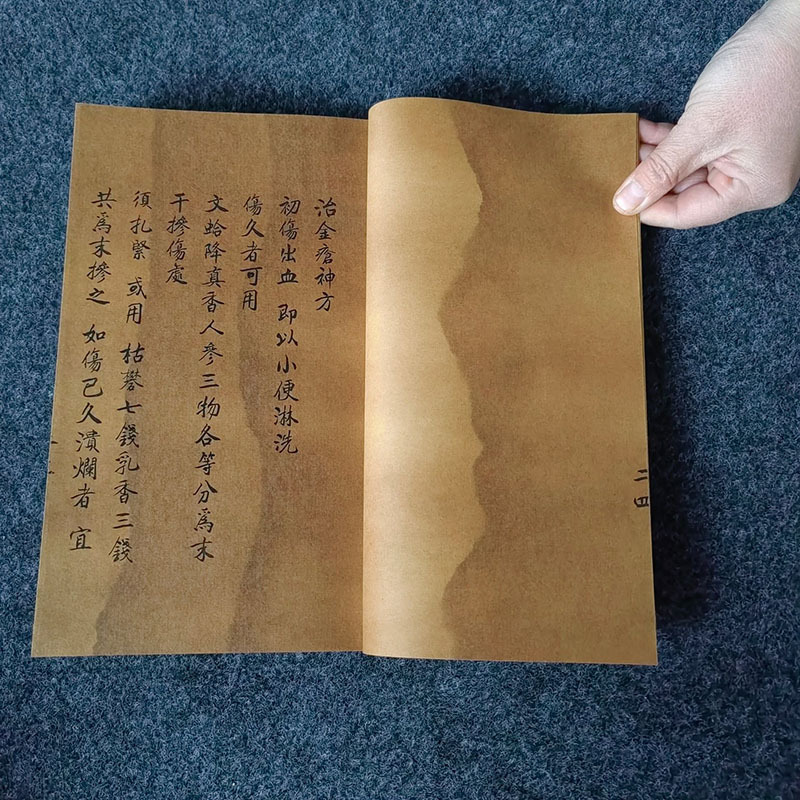 治金瘡神方
初傷出血 即以小便淋洗
傷久者可用
文蛤降真香人參三物各等分爲末
干摻傷處
須扎緊 或用 枯礬七錢乳香三錢
共爲末摻之 如傷已久潰爛者 宜
二四